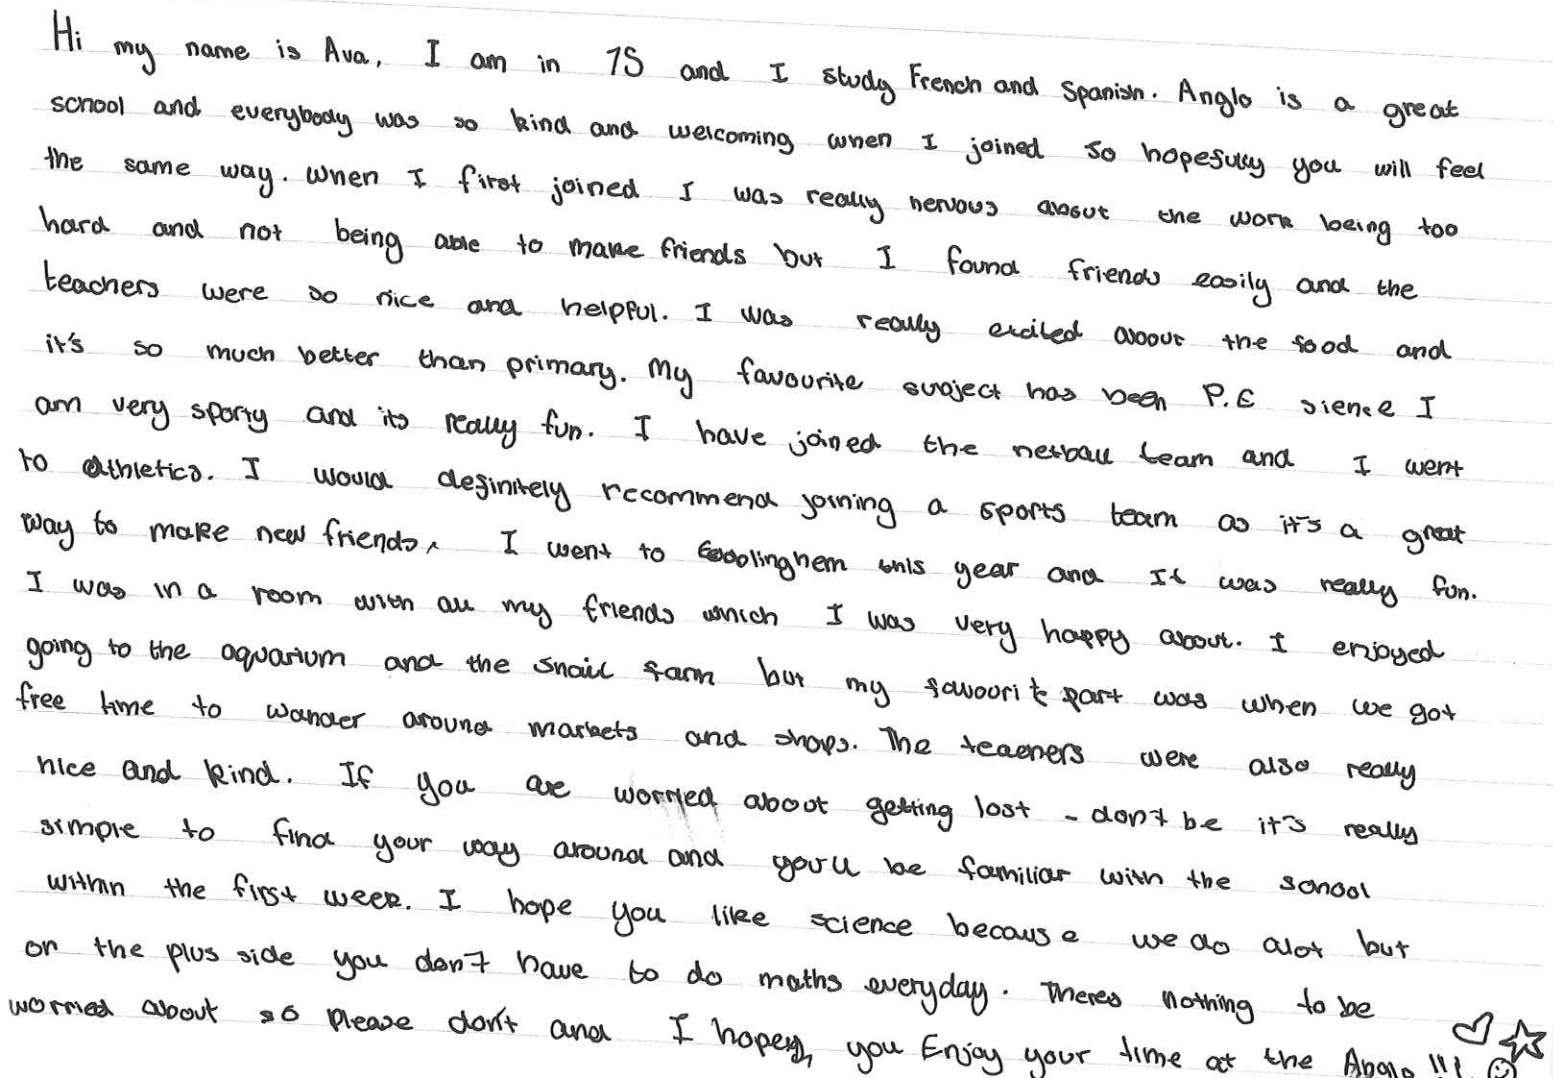 Hi my name is Ava, I am in 7S and I study French and Spanish. Anglo is a great
school and everybody was so kind and welcoming when I joined so hopefully you will feel
the same way. When I first joined I was really nervous about the work being too
hard and not being able to make friends but I found friends easily and the
teachers were so nice and helpful. I was really excited about the food and
it's so much better than primary. My favourite subject has been P.E sience I
am very sporty and its really fun. I have joined the netball team and I went
to athletics. I would definitely recommend joining a sports team as it's a great
way to make new friends. I went to this year and It was really fun.
I was in a room with all my friends which I was very happy about. I enjoyed
going to the aquarium and the snail farm but my favourite part was when we got
free time to wander around markets and shops. The teachers were also really
nice and kind. If you are worried about getting lost - don't be it's really
simple to find your way around and you'll be familiar with the school
within the first week. I hope you like science because we do alot but
on the plus side you don't have to do maths everyday. Theres nothing to be
worried about so please don't and I hope you Enjoy your time at the Anglo!!!